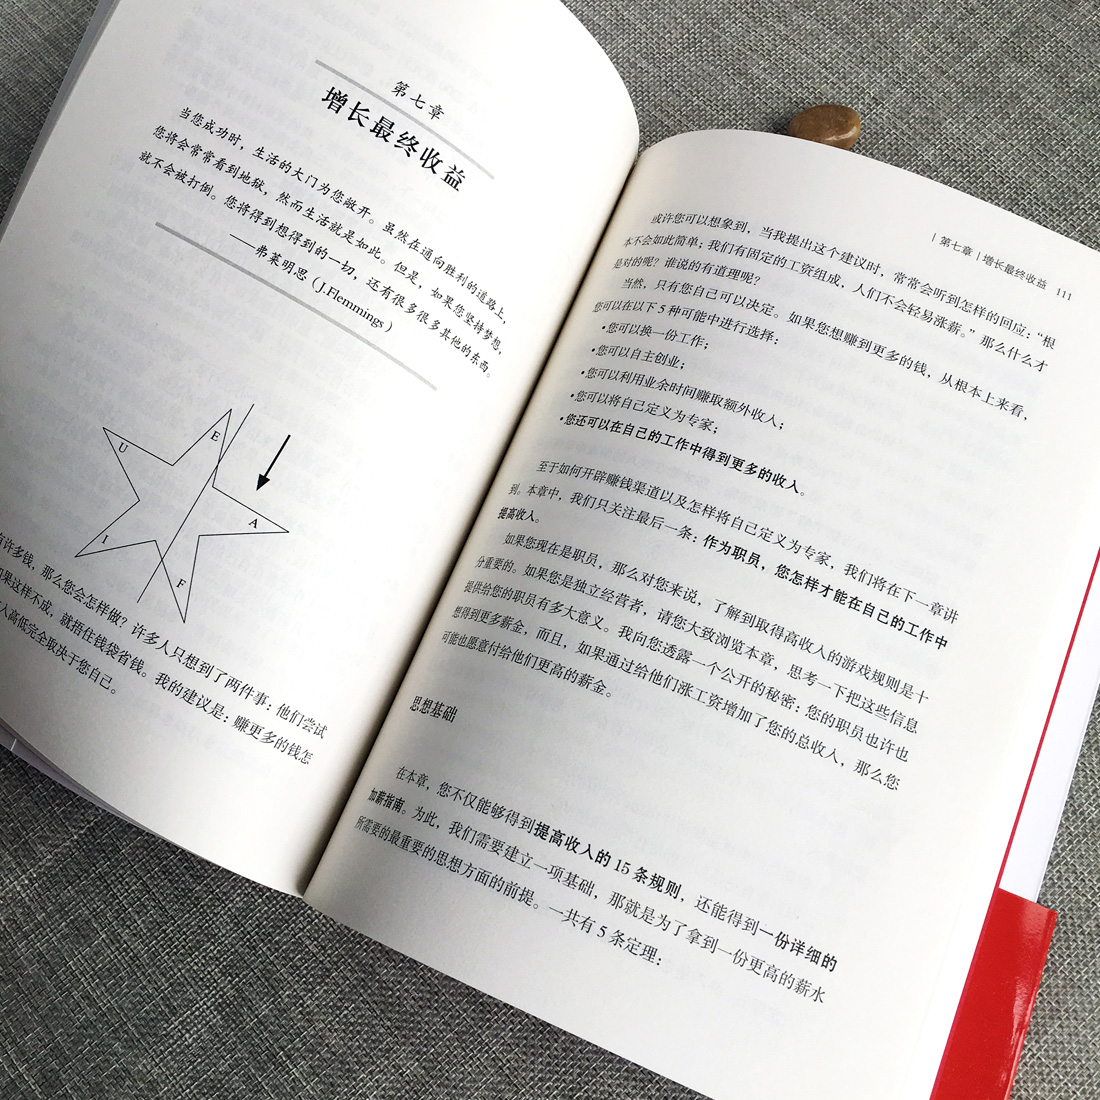 第七章
增长最终收益
当您成功时，生活的大门为您敞开。虽然在通向胜利的道路上，
您将会常常看到地狱，然而生活就是如此。但是，如果您坚持梦想，
就不会被打倒。您将得到想得到的一切，还有很多很多其他的东西。
——弗莱明思（J.Flemmings）
U
E
A
I
F
有许多钱，那么您会怎样做？许多人只想到了两件事：他们尝试
如果这样不成，就捂住钱袋省钱。我的建议是：赚更多的钱怎
人高低完全取决于您自己。
第七章 | 增长最终收益 111
或许您可以想象到，当我提出这个建议时，常常会听到怎样的回应：“根
本不会如此简单；我们有固定的工资组成，人们不会轻易涨薪。”那么什么才
是对的呢？谁说的有道理呢？
当然，只有您自己可以决定。如果您想赚到更多的钱，从根本上来看，
您可以在以下 5 种可能中进行选择：
•您可以换一份工作；
•您可以自主创业；
•您可以利用业余时间赚取额外收入；
•您可以将自己定义为专家；
•您还可以在自己的工作中得到更多的收入。
至于如何开辟赚钱渠道以及怎样将自己定义为专家，我们将在下一章讲
到。本章中，我们只关注最后一条：作为职员，您怎样才能在自己的工作中
提高收入。
如果您现在是职员，那么对您来说，了解到取得高收入的游戏规则是十
分重要的。如果您是独立经营者，请您大致浏览本章，思考一下把这些信息
提供给您的职员有多大意义。我向您透露一个公开的秘密：您的职员也许也
想得到更多薪金，而且，如果通过给他们涨工资增加了您的总收入，那么您
可能也愿意付给他们更高的薪金。
思想基础
在本章，您不仅能够得到提高收入的 15 条规则，还能得到一份详细的
加薪指南。为此，我们需要建立一项基础，那就是为了拿到一份更高的薪水
所需要的最重要的思想方面的前提。一共有 5 条定理：